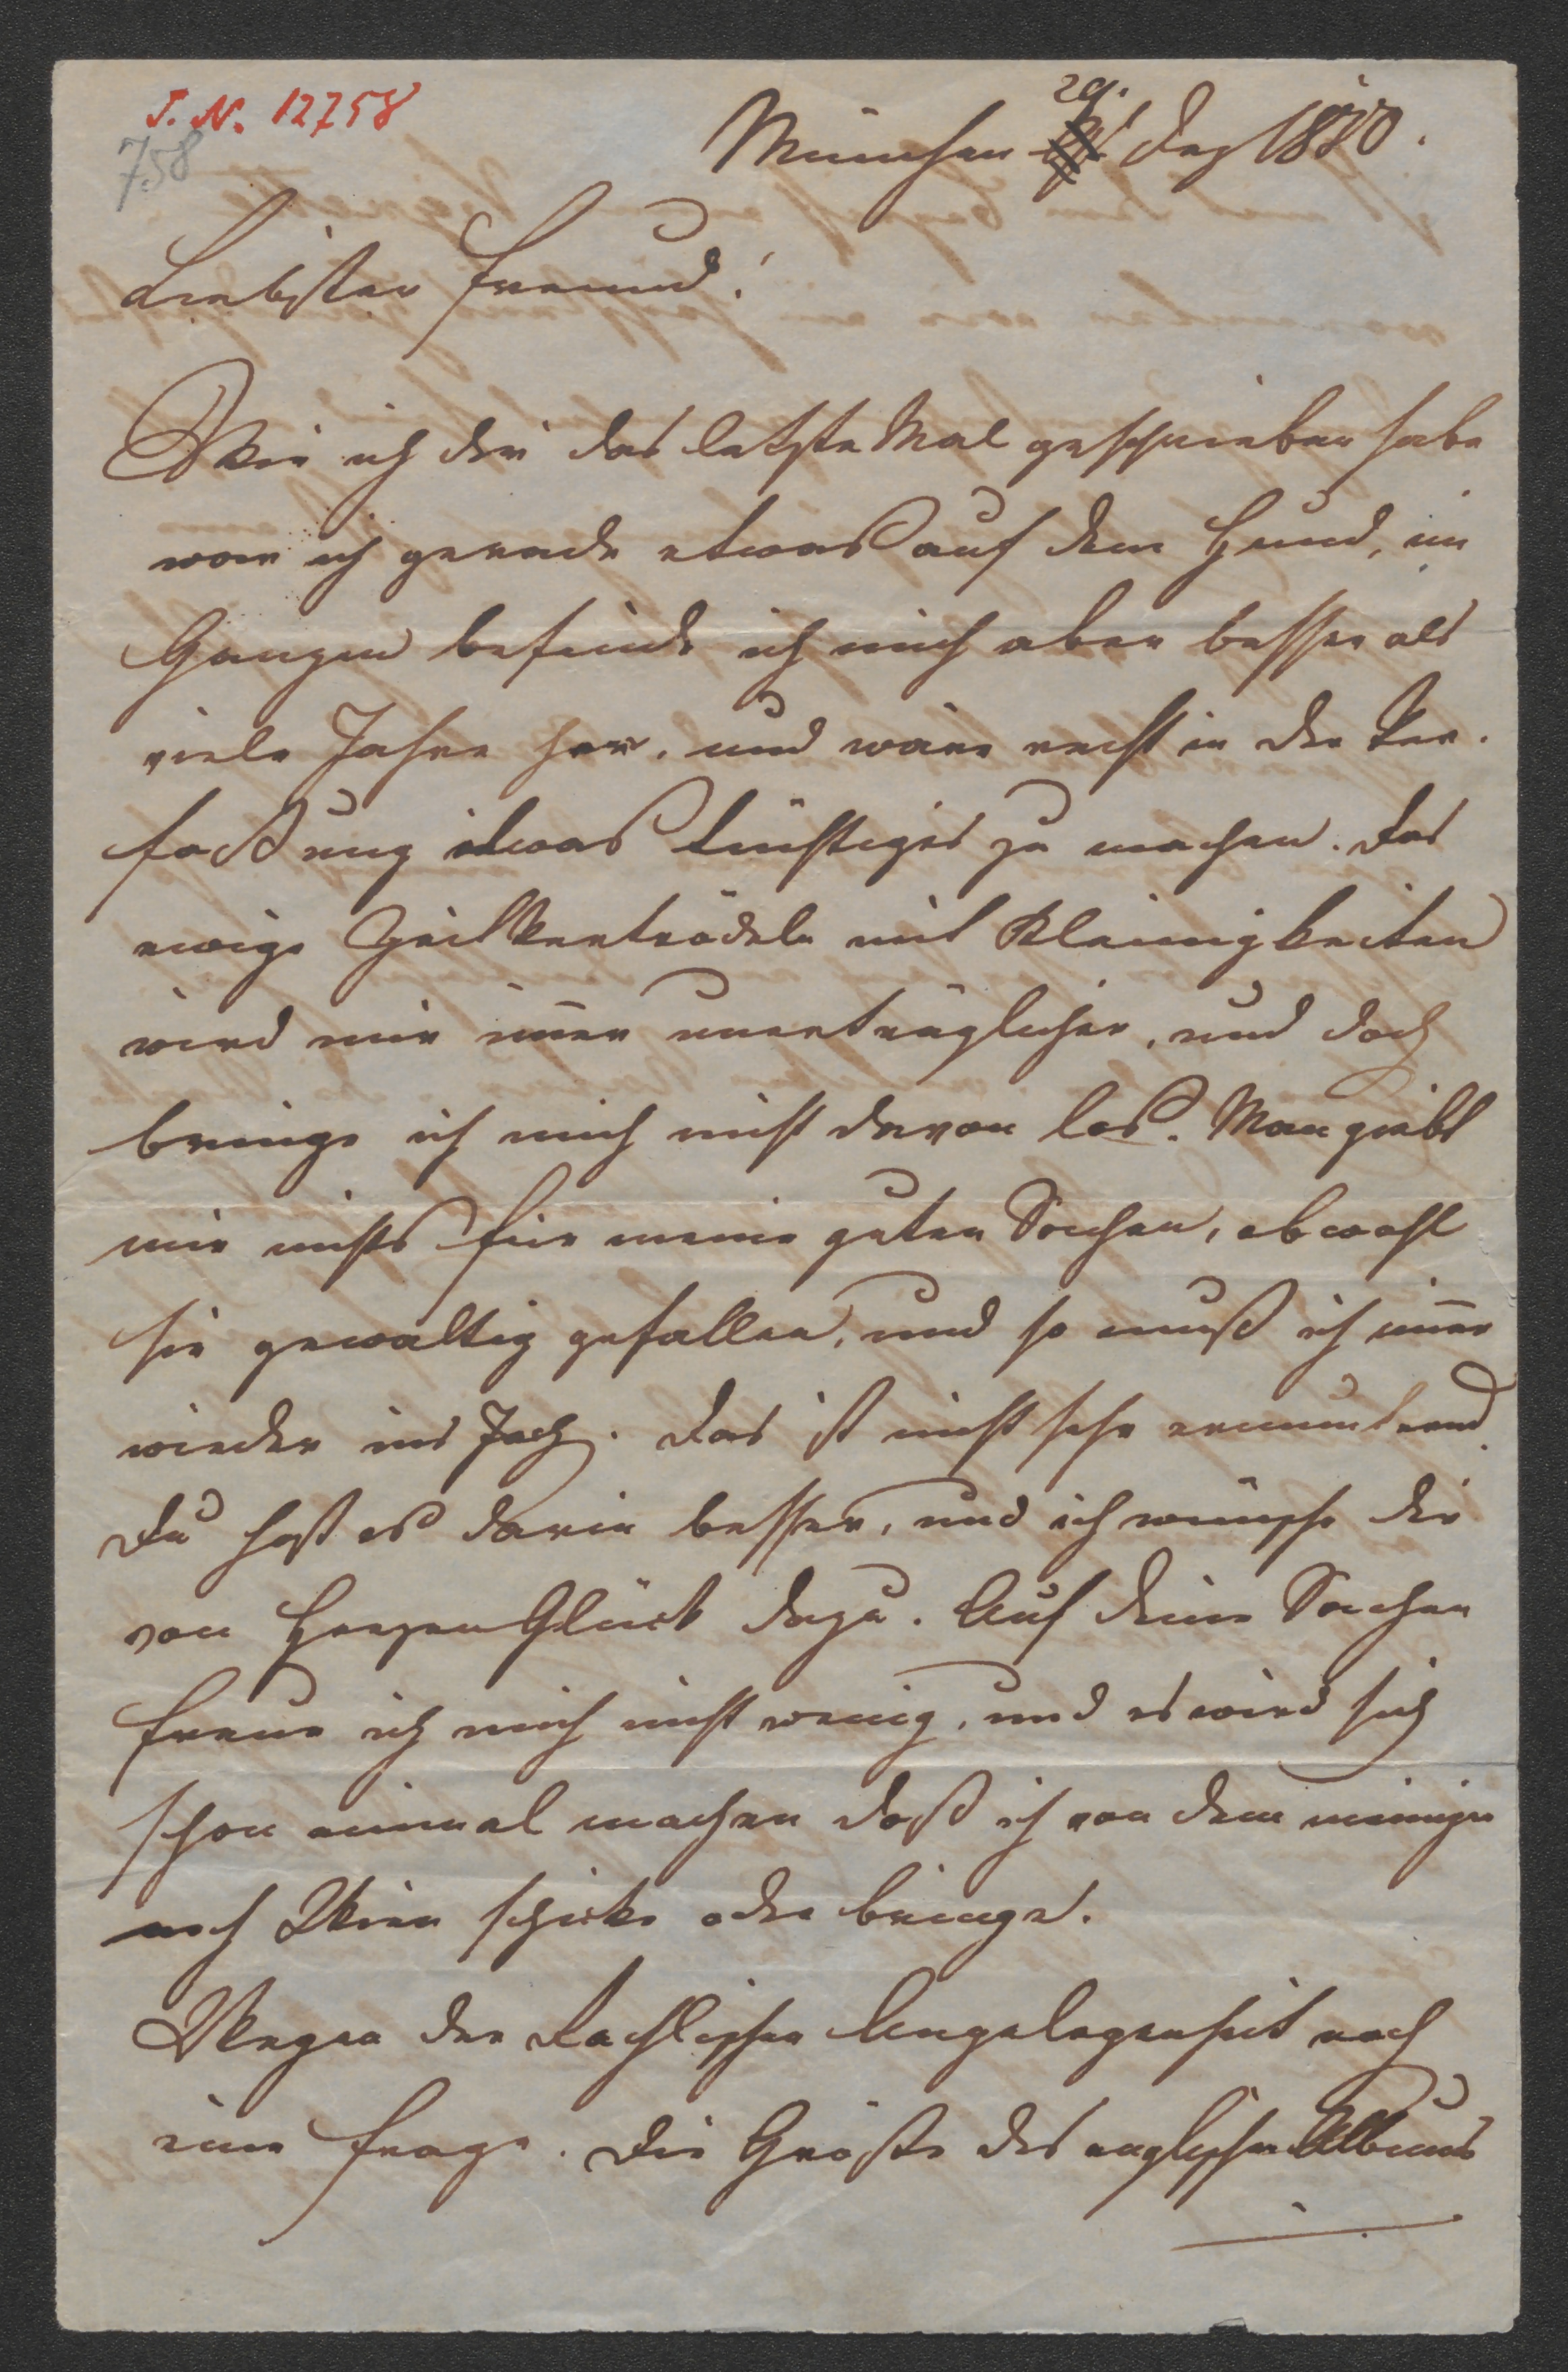 J. N. 12758
758
29.
München Dez 1850.
Liebster Freund!
Wie ich dir das letzte Mal geschrieben habe
war ich gerade etwas auf dem Hund, im
Ganzen befinde ich mich aber besser als
viele Jahre her, und wäre recht in der Ver¬
faßung etwas tüchtiges zu machen. Das
ewige Zeitvertrödeln mit Kleinigkeiten
wird mir im̅er unerträglicher, und doch
bringe ich mich nicht davon los. Man giebt
mir nichts für meine guten Sachen, obwohl
sie gewaltig gefallen, und so muß ich im̅er
wieder ins Joch. Das ist nicht sehr ermunternd.
Du hast es darin besser, und ich wünsche dir
von Herzen Glück dazu. Auf deine Sachen
freue ich mich nicht wenig, und es wird sich
schon einmal machen daß ich von dem meinigen
nach Wien schicke oder bringe.
Wegen der Angelegenheit noch
eine Frage. Die Größe des englischen Albums